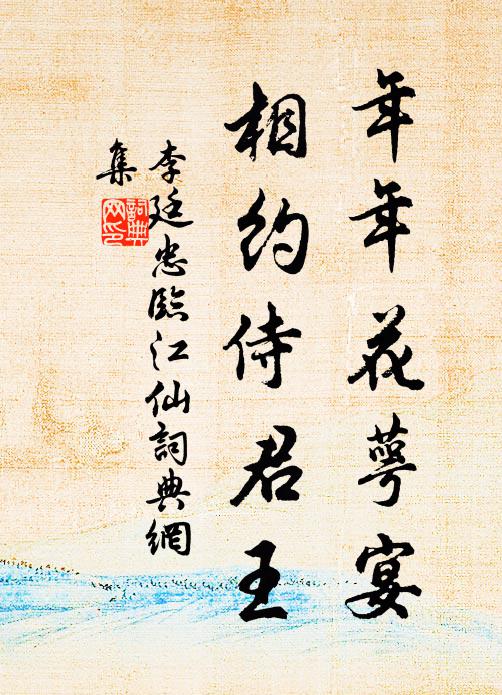 年年花萼宴
相約侍君王
李廷忠臨江仙詞典網
集
詞典網印